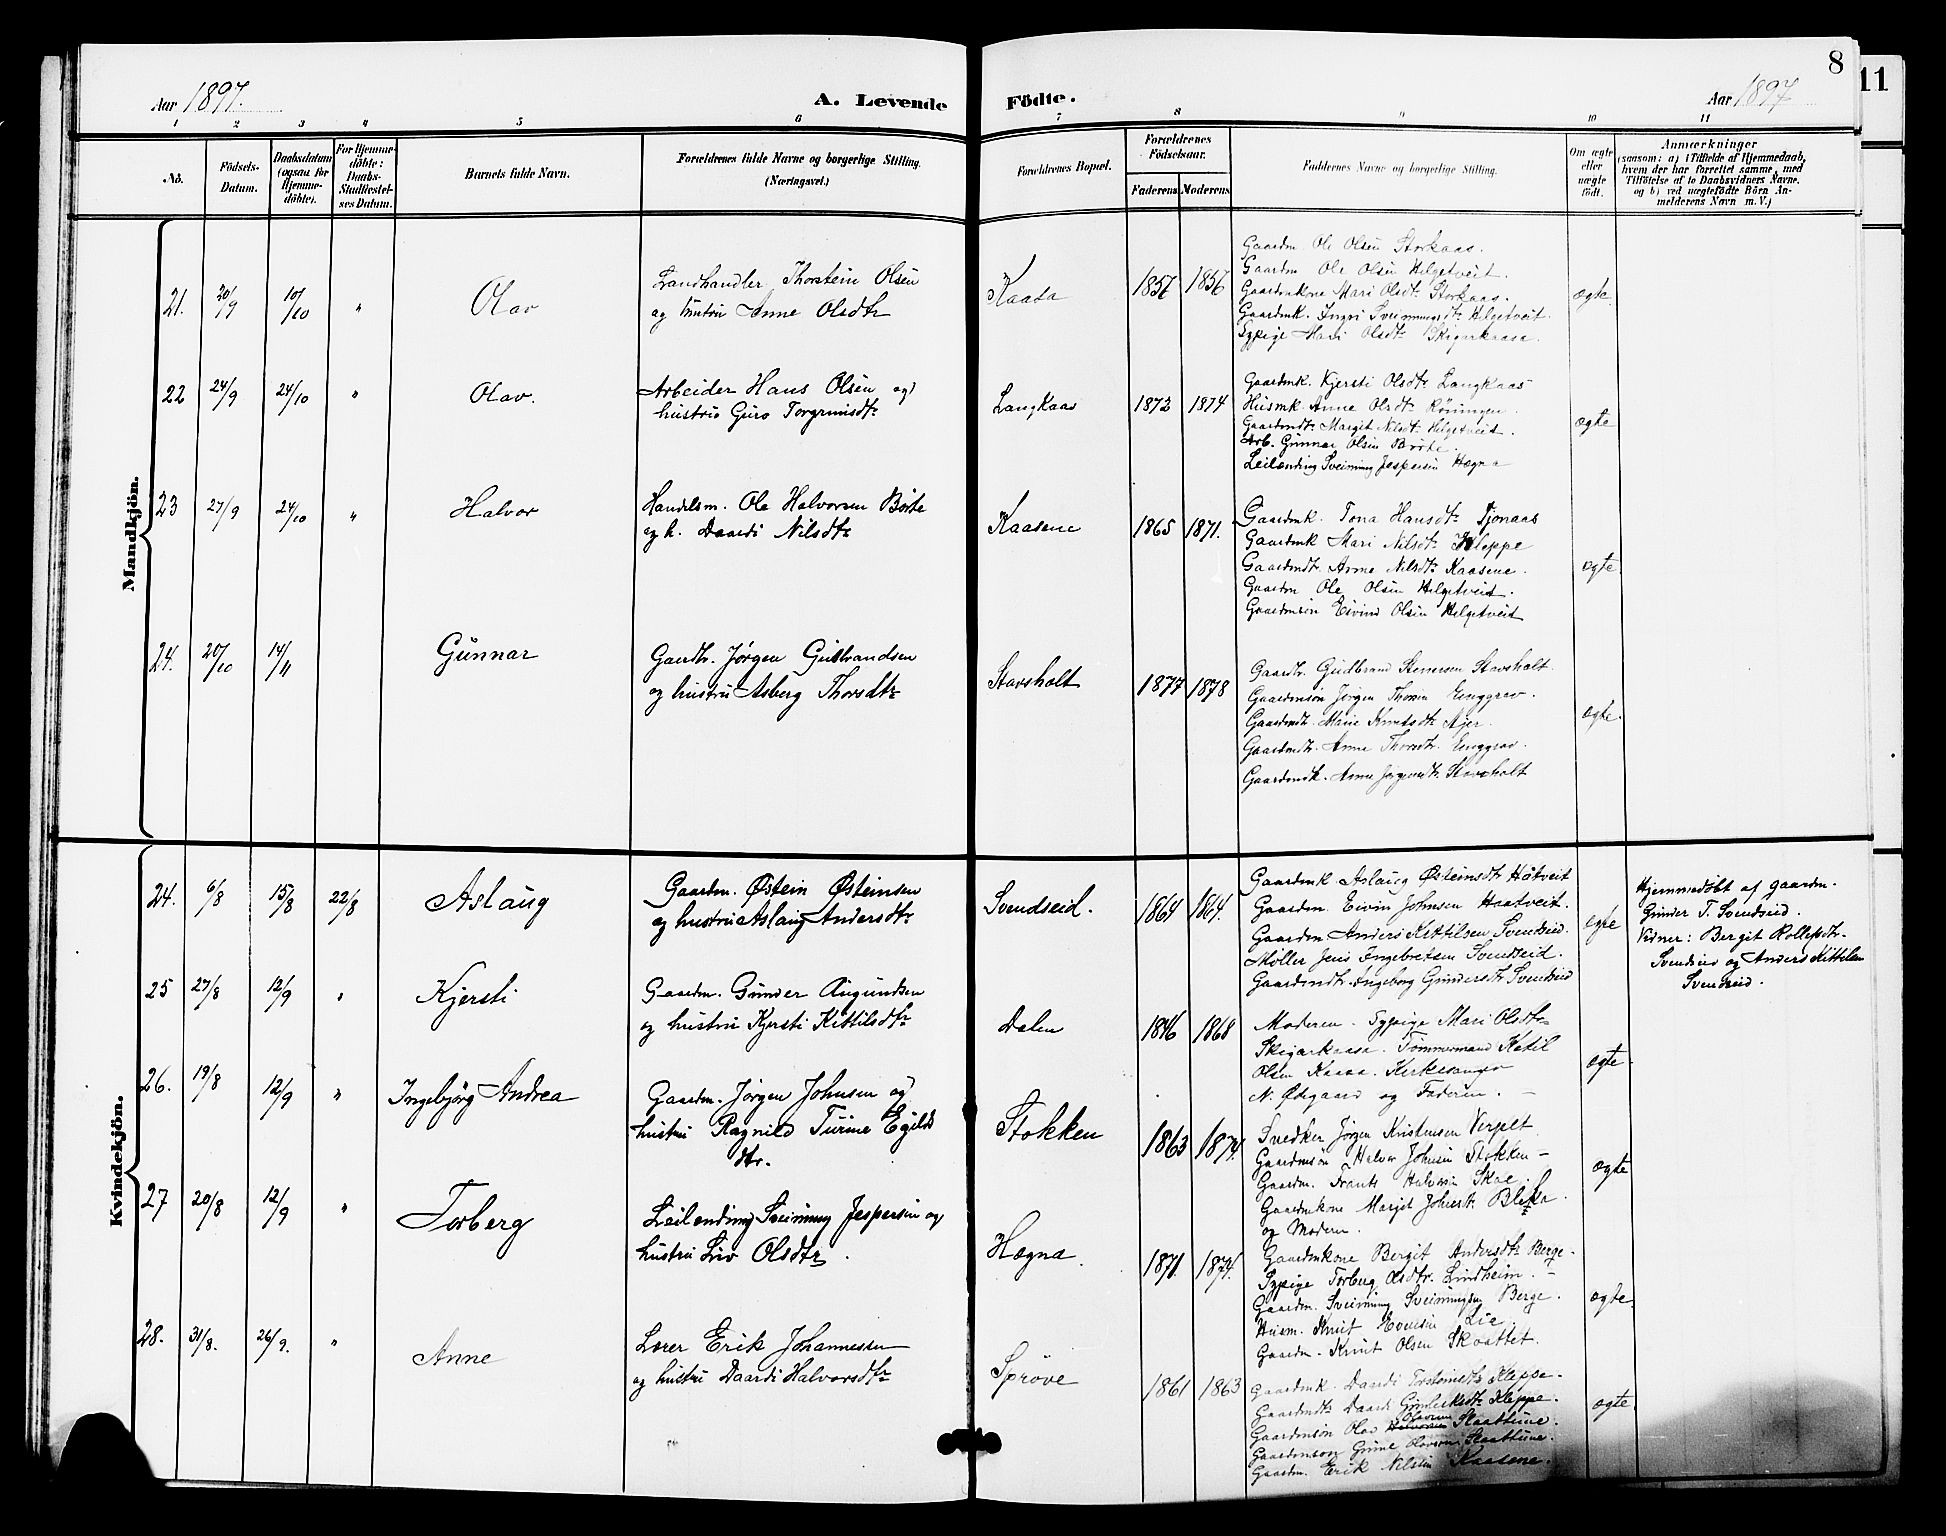 Aar 1897.
A. Levende
Födte.
Aar 1897
8
11
1 2 3 4 5 6 7 8 9 10 11
No.
Födsels-
Datum.
Daabsdatum
(ogsaa for
Hjemme-
döbte).
For Hjemme-
döbte:
Daabs-
Stadfæstel-
ses Datum.
Barnets fulde Navn.
Forældrenes fulde Navne og borgerlige Stilling.
(Næringsvei.)
Forældrenes Bopæl.
Forældrenes
Födselsaar.
Faderens
Moderens
Faddernes Navne og borgerlige Stilling.
Om ægte
eller
uægte
födt.
Anmærkninger
(saasom: a) i Tilfælde af Hjemmedaab,
hvem der har forrettet samme, med
Tilföielse af to Daabsvidners Navne,
og b) ved uægtefödte Börn An-
melderens Navn m. V.)
Mandkjön.
21. 20/9 10/10 " Olav
Landhandler Thorstein Olsen
og hustru Anne Olsdtr
Kaasa
1857 1856
Gaardm. Ole Olsen Storkaas.
Gaardm Ole Olsen Helgetveit.
Gaardmkone Mari Olsdtr Storkaas.
Gaardmk. Ingri Sveinungsdtr Helgetveit.
Sypige Mari Olsdtr Skigarkaasa.
ægte
22 24/9 24/10 " Olav.
Arbeider Hans Olsen og
hustru Guro Torgrimsdtr
Langkaas
1873 1874
Gaardmk. Kjersti Olsdtr Langkaas
Husmk. Anne Olsdtr Röningen.
Gaardmdtr Margit Nilsdtr Helgetveid.
Arb. Gunnar Olsen Børte.
Leilænding Sveinung Jespersen Hægna
ægte
23 27/9 24/10 " Halvor
Handelsm. Ole Halvorsen Börte
og h. Daardi Nilsdtr
Kaasene
1865 1871.
Gaardmk. Tona Hansdtr Tjonaas
Gaardmk Mari Nilsdtr Kleppe
Gaardmdtr Anne Nilsdtr Kaasene.
Gaardm Ole Olsen Helgetveid.
Gaardmsön Eivind Olsen Helgetveid
ægte.
24. 20/10 14/11 Gunnar
Gaardbr. Jørgen Gudbrandsen
og hustru Asberg Thorsdtr
Stavsholt
1877 1878
Gaardbr. Gudbrand Stavsholt
Gaardmsön Jørgen Enggrav.
Gaardmdtr. Marie Knutsdtr
Gaardmdtr. Anne Thorsdtr. Enggrav.
Gaardmk. Anne Jørgensdtr Stavsholt
ægte.
Kvindekjön.
24. 6/8 15/8 22/8 Aslaug
Gaardm. Østein Østeinsen
og hustru Aslaug Andersdtr
Svendseid.
1864 1864.
Gaardmk Aslaug Østeinsdtr Håtveit
Gaardm. Eivin Johnsen Haatveit.
Gaardm Anders Kittilsen Svendseid.
Møller Jens Ingebretsen Svendseid.
Gaardmdtr. Ingeborg Gundersdtr Svendseid
ægte
Hjemmedøbt af gaardm.
Gunder T. Svendseid.
Vidner: Bergit Rollefsdtr.
Svendseid og Anders Kittilsen
Svendseid.
25 27/8 12/9 " Kjersti
Gaardm. Gunder Augundsen
og hustru Kjersti Kittilsdtr
Dalen
1846 1868
Moderen. Sypige Mari Olsdtr
Skigarkaasa. Tømmermand Ketil
Olsen Kaasa. Kirkesanger
N. Ødegaard og Faderen.
ægte.
26. 19/8 12/9 " Ingebjörg Andrea
Gaardm. Jørgen Johnsen og
hustru Ragnild Turine Egilds
dtr.
Stokken
1863 1874.
Snedker Jørgen Kristensen Verpet.
Gaardmsön Halvor Johnsen Stokken
Gaardm. Frants Halvorsen Skoe.
Gaardmkone Margit Johnsdtr Bleka.
og Moderen.
ægte
27 20/8 12/9 " Torberg
Leilending Sveinung Jespersen og
hustru Liv Olsdtr.
Hægna.
1871. 1874.
Gaardmkone Bergit Andersdtr Berge.
Sypige Torberg Olsdtr. Lindheim.
Gaardm. Sveinung Sveinungsen Berge.
Husm. Knut Evensen Lie.
Gaardm. Knut Olsen Skoattet.
ægte.
28. 31/8. 26/9. " Anne
Lærer Erik Johannessen
og hustru Daardi Halvorsdtr
Sprove
1861 1863
Gaardmk. Daardi Torsteinsdtr Kleppe.
Gaardmdtr Daardi Kleppe.
Gaardmsön Olav Olavsen Staattune.
Gaardmson Olavsen Staattune.
Gaardm. Erik Nilsen Kaasene.
ægte.